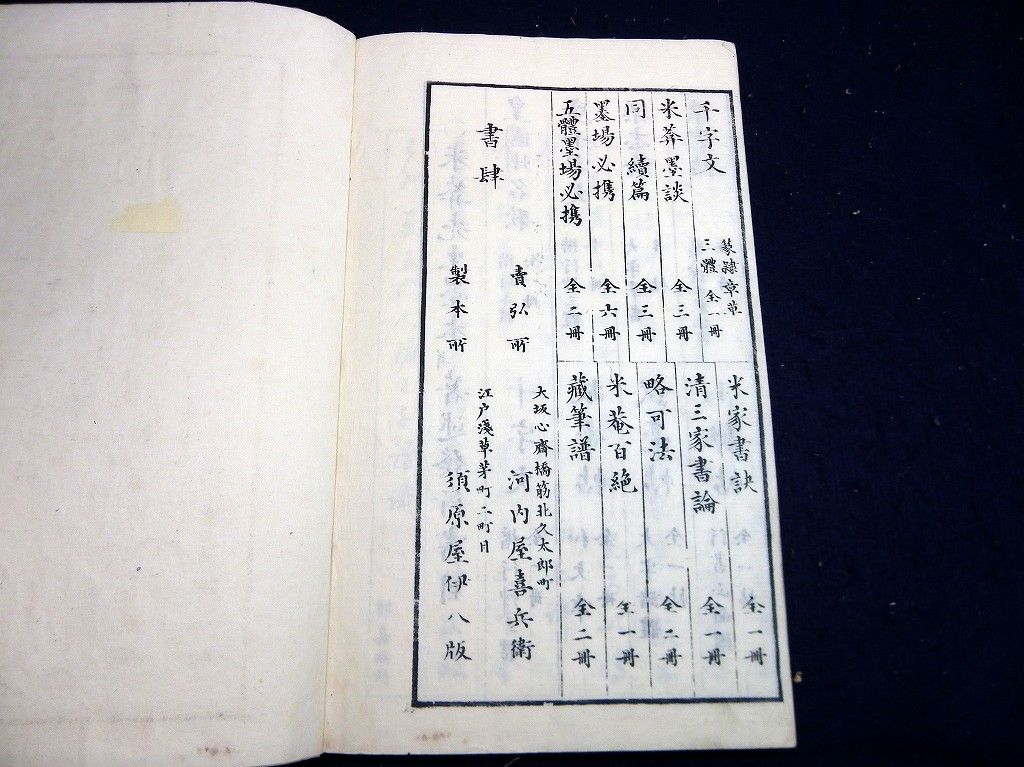 千字文 篆隷章草
三體 全一冊
米菴墨談 全三冊
同 續篇 全三冊
墨場必携 全六冊
五體墨場必携 全二冊
米家書訣 全一冊
清三家書論 全一冊
略可法 全二冊
米菴百絶 全一冊
藏筆譜 全二冊
書肆
大坂心齋橋筋北久太郎町
賣弘所 河内屋喜兵衛
江戸淺草茅町二町目
製本所 須原屋伊八版